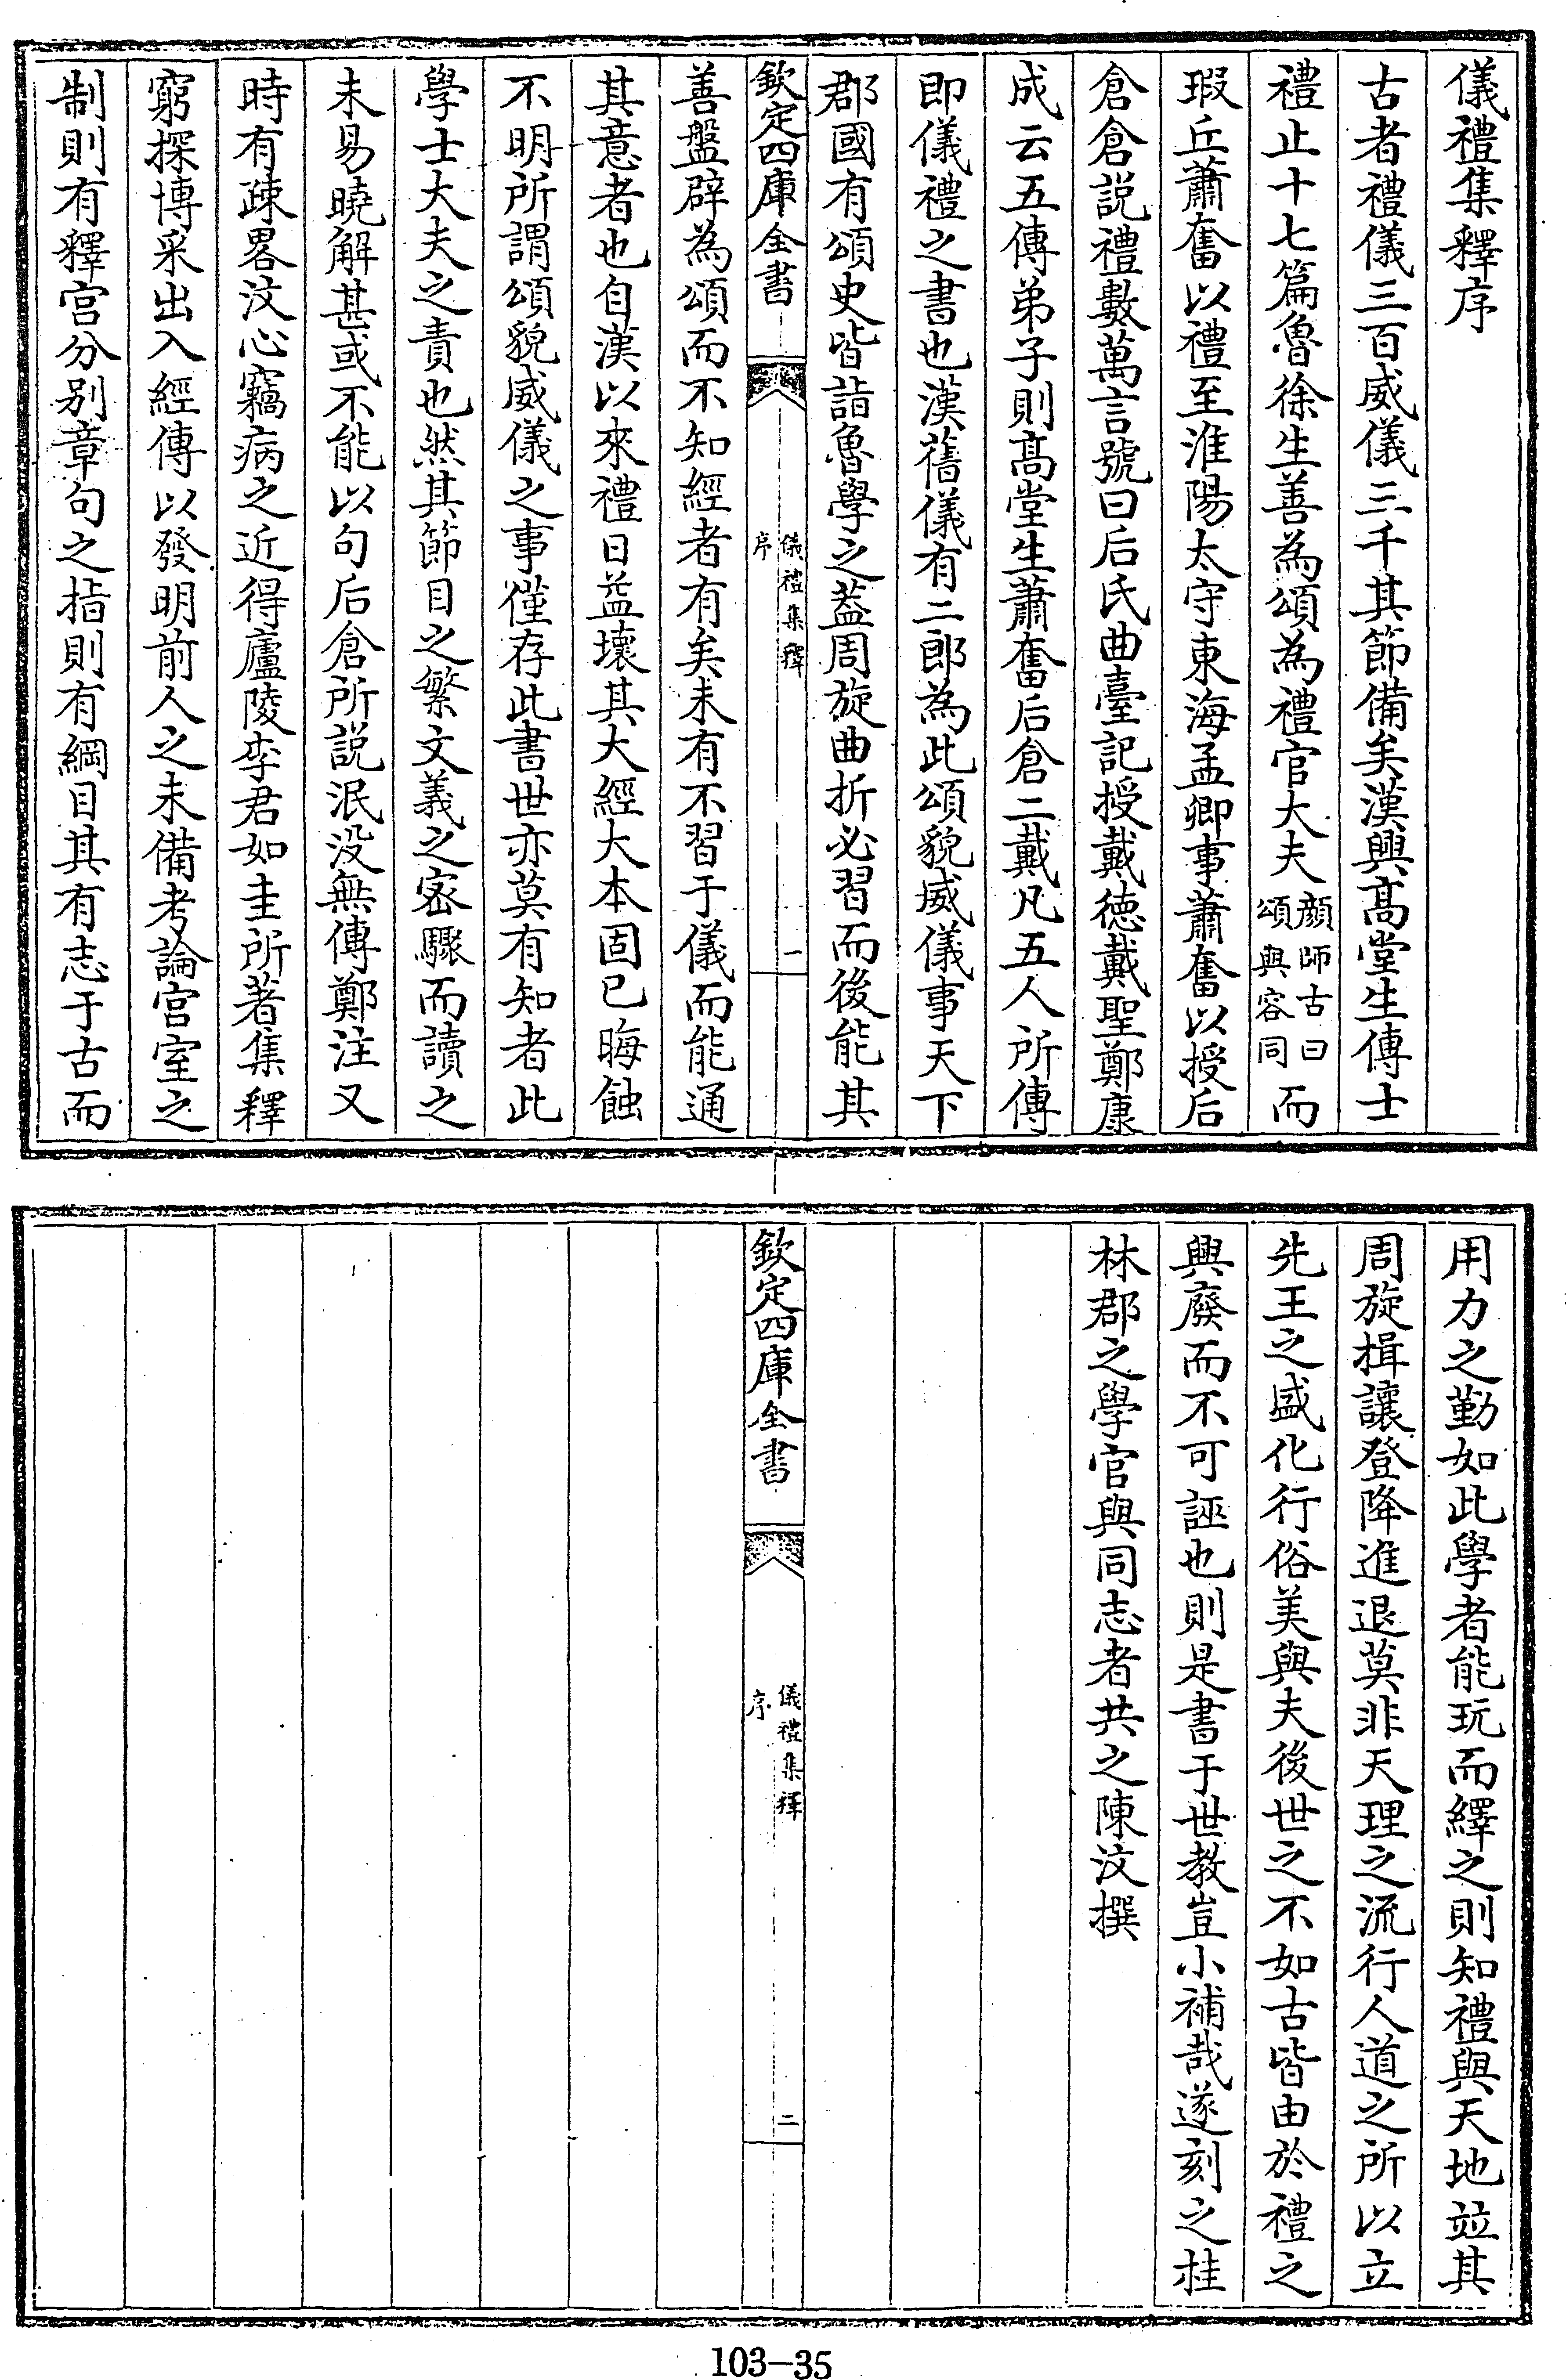 儀禮集釋序
古者禮儀三百威儀三千其節備矣漢興髙堂生傳士
禮止十七篇魯徐生善為頌為禮官大夫顔師古曰頌與容同而
瑕丘蕭奮以禮至淮陽太守東海孟卿事蕭奮以授后
倉倉説禮數萬言號曰后氏曲臺記授戴徳戴聖鄭康
成云五傳弟子則髙堂生蕭奮后倉二戴凡五人所傳
即儀禮之書也漢舊儀有二郎為此頌貌威儀事天下
郡國有頌史皆詣魯學之葢周旋曲折必習而後能其
欽定四庫全書
儀禮集釋
序
一
善盤辟為頌而不知經者有矣未有不習于儀而能通
其意者也自漢以來禮日益壞其大經大本固已晦蝕
不明所謂頌貌威儀之事僅存此書世亦莫有知者此
學士大夫之責也然其節目之繁文義之宻驟而讀之
未易曉解甚或不能以句后倉所説泯没無傳鄭注又
時有疎畧汶心竊病之近得廬陵李君如圭所著集釋
窮探博采出入經傳以發明前人之未備考論宫室之
制則有釋宫分别章句之指則有綱目其有志于古而
用力之勤如此學者能玩而繹之則知禮與天地竝其
周旋揖讓登降進退莫非天理之流行人道之所以立
先王之盛化行俗美與夫後世之不如古皆由於禮之
興廢而不可誣也則是書于世教豈小補哉遂刻之桂
林郡之學官與同志者共之陳汶撰
欽定四庫全書
儀禮集釋
序
二
103-35